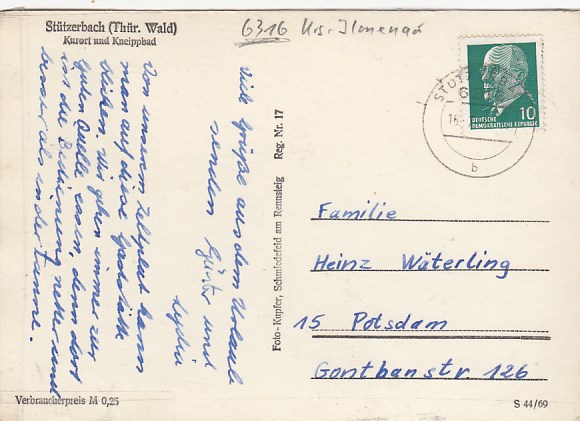 Stützerbach (Thür. Wald)
Kurort und Kneippbad
6316 Krs. Ilmenau
Von unserm Zeltplatz kann
man auf diese Gaststätte
blicken. Wir gehen immer zur
guten Quelle essen, denn dort
ist die Bedienung netter und
besser als in der Tanne.
Viele Grüße aus dem Urlaub
senden Günter und
Lydia
Foto-Kupfer, Schmiedefeld am Rennsteig Reg. Nr. 17
DEUTSCHE
DEMOKRATISCHE REPUBLIK
10
b
Familie
Heinz Wäterling
15 Potsdam
Gontbanstr. 126
Verbraucherpreis M 0,25
S 44/69